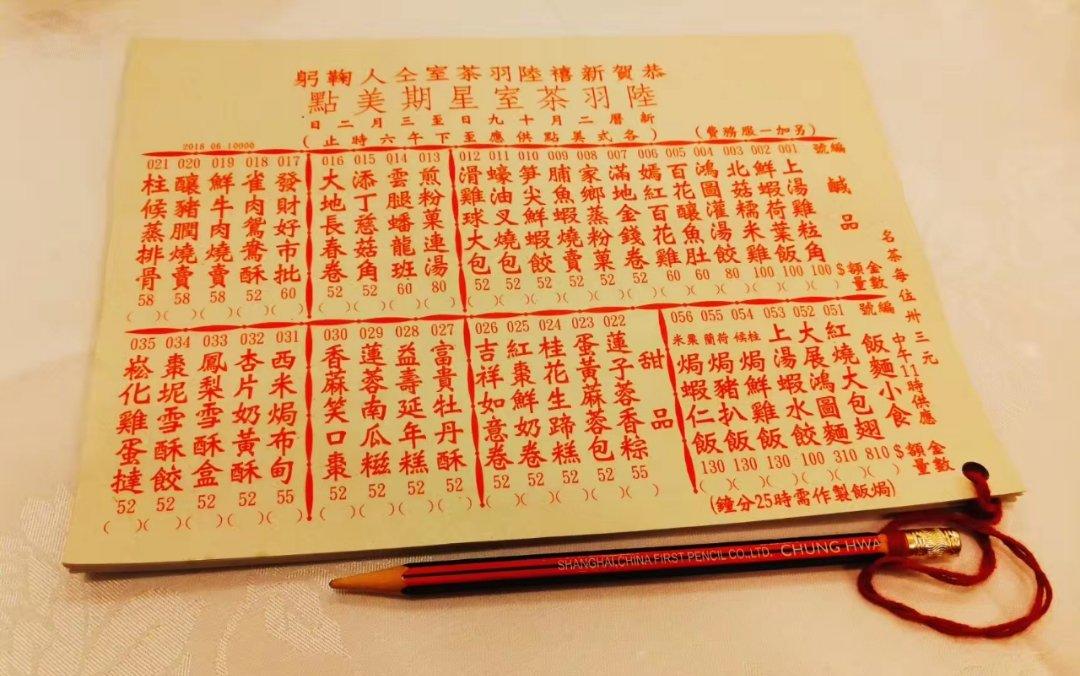 恭賀新禧陸羽茶室仝人鞠躬
陸羽茶室星期美點
新曆二月十九日至三月二日
(各式美點供應至下午六時止)
(另加一服務費)
2018 06 10000
名茶每位卅三元
編號 鹹品 金額 數量 $
001 上湯雞粒角 100 ( )
002 鮮蝦荷葉飯 100 ( )
003 北菇糯米雞 100 ( )
004 鴻圖灌湯餃 80 ( )
005 百花釀魚肚 60 ( )
006 嫣紅百花雞 60 ( )
007 滿地金錢卷 52 ( )
008 家鄉蒸粉菓 52 ( )
009 脯魚蝦燒賣 52 ( )
010 笋尖鮮蝦餃 52 ( )
011 蠔油叉燒包 52 ( )
012 滑雞球大包 52 ( )
013 煎粉菓連湯 80 ( )
014 雲腿蟠龍班 60 ( )
015 添丁慈菇角 52 ( )
016 大地長春卷 52 ( )
017 發財好市批 60 ( )
018 雀肉鴛鴦酥 52 ( )
019 鮮牛肉燒賣 58 ( )
020 釀豬膶燒賣 58 ( )
021 柱候蒸排骨 58 ( )
中午11時供應
編號 飯麵小食 金額 數量 $
051 紅燒大包翅 810 ( )
052 大展鴻圖麵 310 ( )
053 上湯蝦水餃 100 ( )
054 柱候焗鮮雞飯 130 ( )
055 荷蘭焗豬扒飯 130 ( )
056 粟米焗蝦仁飯 130 ( )
(焗飯製作需時25分鐘)
甜品
022 蓮子蓉香粽 55 ( )
023 蛋黃麻蓉包 52 ( )
024 桂花生蹄糕 52 ( )
025 紅棗鮮奶卷 52 ( )
026 吉祥如意卷 52 ( )
027 富貴牡丹酥 52 ( )
028 益壽延年糕 52 ( )
029 蓮蓉南瓜糍 52 ( )
030 香麻笑口棗 52 ( )
031 西米焗布甸 55 ( )
032 杏片奶黃酥 52 ( )
033 鳳梨雪酥盒 52 ( )
034 棗坭雪酥餃 52 ( )
035 崧化雞蛋撻 52 ( )
SHANGHAI.CHINA FIRST PENCIL CO.,LTD. CHUNG HWA